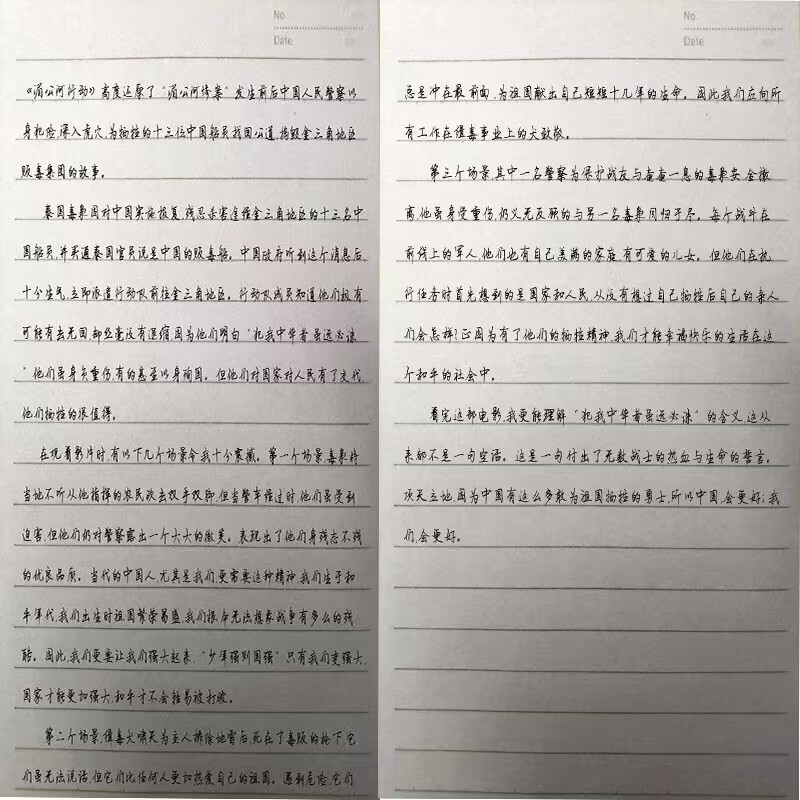 No.
Date
《湄公河行动》高度还原了“湄公河惨案”发生前后中国人民警察以
身犯险,深入虎穴,为牺牲的十三位中国船员找回公道,捣毁金三角地区
贩毒集团的故事。
泰国毒枭因对中国实施报复,残忍杀害途径金三角地区的十三名中
国船员,并买通泰国官员说是中国的贩毒船。中国政府听到这个消息后
十分生气,立即派遣行动队前往金三角地区。行动队成员知道他们极有
可能有去无回却丝毫没有退缩,因为他们明白“犯我中华者虽远必诛
”他们虽身负重伤,有的甚至以身殉国。但他们对国家对人民有了交代,
他们牺牲的很值得。
在观看影片时,有以下几个场景令我十分震撼。第一个场景,毒枭将
当地不听从他指挥的农民砍去双手双脚,但当警车经过时,他们虽受到
迫害,但他们仍对警察露出一个大大的微笑。表现出了他们身残志不残
的优良品质。当代的中国人,尤其是我们,更需要这种精神,我们生于和
平年代,我们出生时祖国繁荣昌盛,我们根本无法想象战争有多么的残
酷。因此,我们更要让我们强大起来,“少年强则国强”只有我们变强大,
国家才能更加强大,和平才不会轻易被打破。
第二个场景,缉毒犬啸天为主人排除地雷后,死在了毒贩的枪下,它
们虽无法说话,但它们比任何人更加热爱自己的祖国。遇到危险,它们
No.
Date
总是冲在最前面,为祖国献出自己短短十几年的生命。因此我们应向所
有工作在缉毒事业上的犬致敬。
第三个场景,其中一名警察为保护战友与奄奄一息的毒枭安全撤
离,他虽身受重伤,仍义无反顾的与另一名毒枭同归于尽。每个战斗在
前线上的军人,他们也有自己美满的家庭,有可爱的儿女。但他们在执
行任务时首先想到的是国家和人民,从没有想过自己牺牲后自己的亲人
们会怎样?正因为有了他们的牺牲精神,我们才能幸福快乐的生活在这
个和平的社会中。
看完这部电影,我更能理解“犯我中华者虽远必诛”的含义,这从
来都不是一句空话。这是一句付出了无数战士的热血与生命的誓言。
顶天立地,因为中国有这么多敢为祖国牺牲的勇士,所以中国,会更好;我
们,会更好。